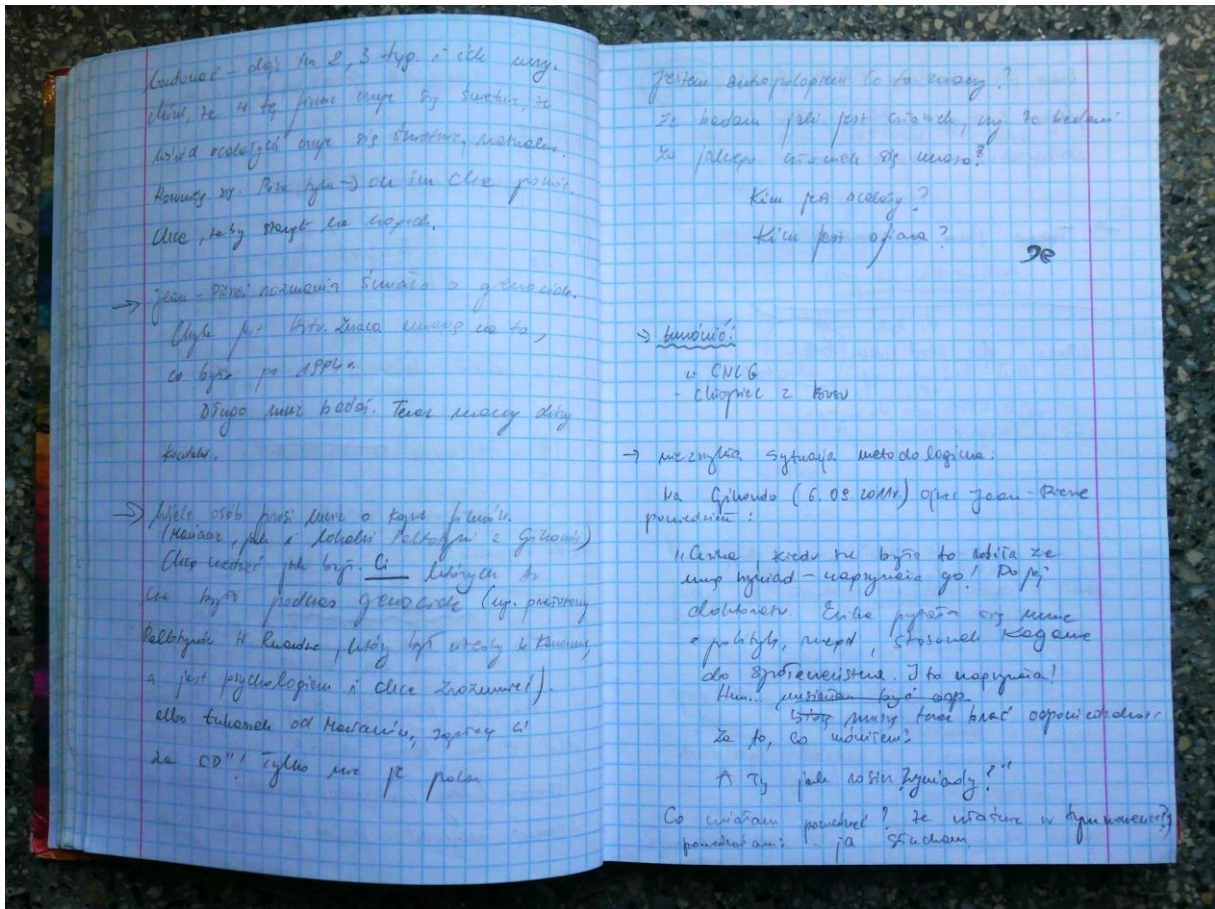 budować – daj im 2, 3 tyg. i ich
że w tę czuje się świetnie, że
wśród ocalałych czuje się świetnie, naturalnie.
Poza tym → on im chce pomóc.
Chce, żeby stanęli na nogach.
→ Jean-Pierre rozmawia śmiało o genocide.
Chyba jest Zwraca uwagę na to,
co było po 1994 r.
Długo mnie badał. Teraz mamy dobry
kontakt.
→ Wiele osób prosi mnie o kopie filmów.
(Marianie, jak i lokalni Pallotyni z Gikondo)
Chcą wiedzieć jak było. Ci których tu
nie było podczas genocide (np. przełożony
Pallotynów w Rwandzie, który był wtedy w Kanadzie,
a jest psychologiem i chce zrozumieć).
albo od Marianów, zapłacę Ci
za CD"! Tylko nie
Jestem antropologiem co to znaczy?
że badam jaki jest człowiek, czy że badam
za jakiego człowiek się uważa?
Kim jest ocalały?
Kim jest ofiara?
→ umówić:
w CNLG
- chłopiec z
→ niezwykła sytuacja metodologiczna:
Na Gikondo (6.09.2011r.) ojciec Jean-Pierre
powiedział:
kiedy tu była to robiła ze
mną wywiad – napisała go! Do jej
doktoratu. pytała się mnie
o politykę, rząd, stosunek Kagame
do społeczeństwa. I to napisała!
Hm... musiałam być odp
muszę teraz brać odpowiedzialność
za to, co mówiłem?
A Ty jak robisz wywiady?"
Co miałam powiedzieć? że właśnie w tym momencie?
powiedziałam: ja słucham